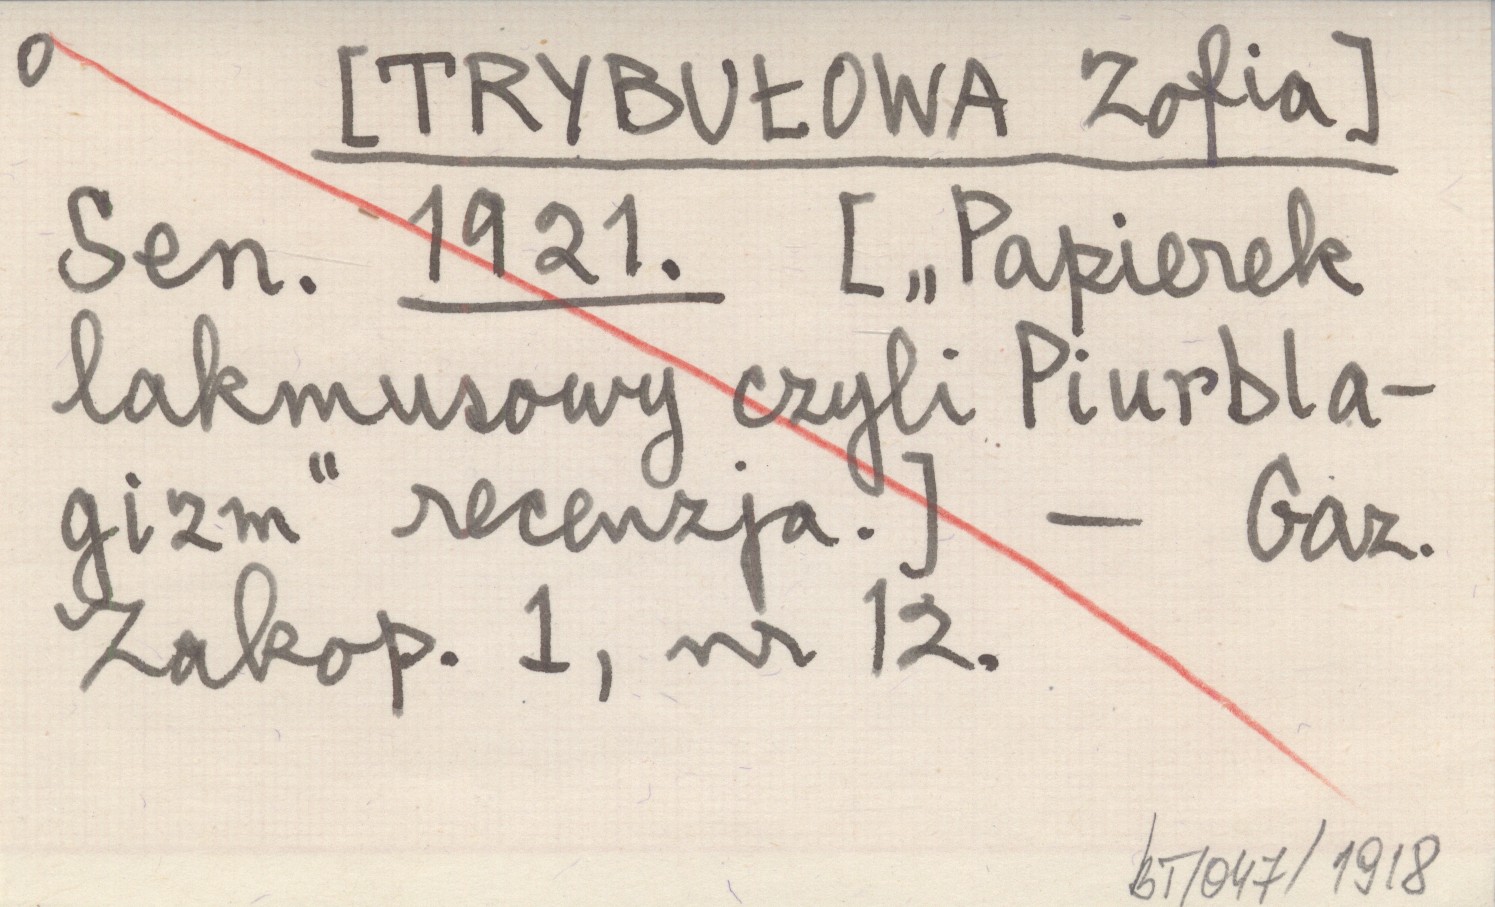 o [TRYBUŁOWA Zofia]
Sen. 1921. [„Papierek
lakmusowy czyli Piurbla-
gizm“ recenzja.] — Gaz.
Zakop. 1, nr 12.
bT/047/1918